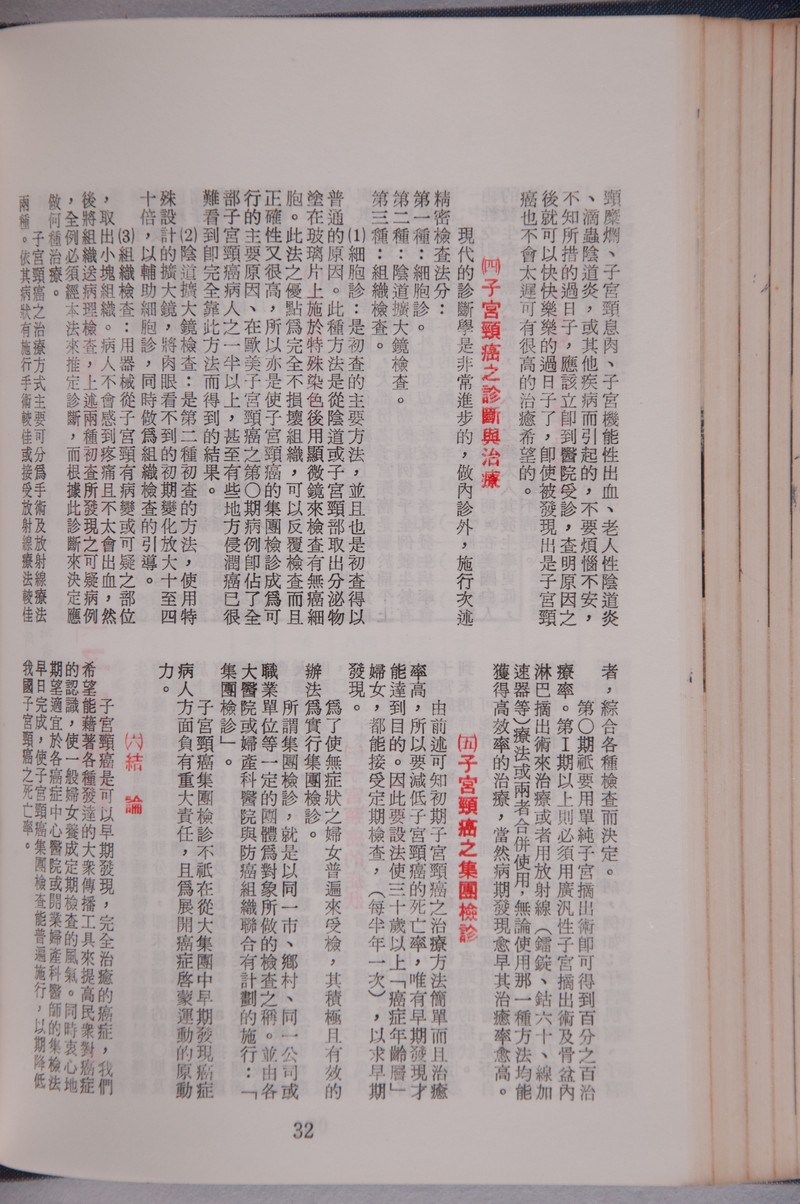 頸糜爛、子宮頸息肉、子宮機能性出血、老人性陰道炎
、滴蟲陰道炎，或其他疾病而引起的，不要煩惱不安，
不知所措的過日子，應該立卽到醫院受診，查明原因之
後就可以快快樂樂的過日子了，卽使被發現出是子宮頸
癌也不會太遲可有很高的治癒希望的。
㈣子宮頸癌之診斷與治療
現代的診斷學是非常進步的，做內診外，施行次述
精密檢查法分：
第一種：細胞診。
第二種：陰道擴大鏡檢查。
第三種：組織檢查。
⑴細胞診：是初查的主要方法，並且也是初查得以
普通的原因。此種方法是從陰道或子宮頸部取出分泌物
塗在玻璃片上施於特殊染色後用顯微鏡來檢查有無癌細
胞。此法之優點爲完全不損壞組織，可以反覆檢查而且
正確性又很高，所以亦是使子宮頸癌的集團檢診成爲可
行的主要原因、在歐美子宮頸癌之第〇期病例卽佔了全
部子宮頸癌病人之一半以上，甚至有些地方侵潤癌已很
難看到卽完全靠此方法而得到的結果。
⑵陰道擴大鏡檢查：是第二種初查的方法，使用特
殊設計的擴大鏡，將肉眼看不到的初期變化放大十至四
十倍，以輔助細胞診，同時做爲組織檢查的引導。
⑶組織檢查：用器械從子宮頸有病變或可疑之部位
，取出小塊組織。病人不會感到疼痛且不太會出血，然
後將組織送病理檢查，上述兩種初查所發現之可疑病例
，全例必須經本法來推定診斷，而根據此診斷來決定應
做何種治療。
子宮頸癌之治療方式主要可分爲手術及放射線療法
兩種。依其病狀有施行手術較佳或接受放射線療法較佳
者，綜合各種檢查而決定。
第〇期祇要用單純子宮摘出術卽可得到百分之百治
療率。第Ⅰ期以上則必須用廣汎性子宮摘出術及骨盆內
淋巴摘出術來治療或者用放射線（鐳錠、鈷六十、線加
速器等）療法或兩者合併使用，無論使用那一種方法均能
獲得高效率的治療，當然病期發現愈早其治癒率愈高。
㈤子宮頸癌之集團檢診
由前述可知初期子宮頸癌之治療方法簡單而且治癒
率高，所以要減低子宮頸癌的死亡率，唯有早期發現才
能達到目的。因此要設法使三十歲以上「癌症年齡層」
婦女，都能接受定期檢查，（每半年一次），以求早期
發現。
爲了使無症狀之婦女普遍來受檢，其積極且有效的
辦法爲實行集團檢診。
所謂集團檢診，就是以同一市、鄉村、同一公司或
職業單位等一定的團體爲對象所做的檢查之稱。並由各
大醫院或婦產科醫院與防癌組織聯合有計劃的施行：「
集團檢診」。
子宮頸癌集團檢診不祇在從大集團中早期發現癌症
病人方面負有重大責任，且爲展開癌症啓蒙運動的原動
力。
㈥結　論
子宮頸癌是可以早期發現，完全治癒的癌症，我們
希望能藉著各種發達的大衆傳播工具來提高民衆對癌症
的認識，使一般婦女養成定期檢查的風氣。同時衷心地
期望適宜於各癌症中心醫院或開業婦產科醫師的集檢法
早日完成，使子宮頸癌集團檢查能普遍施行，以期降低
我國子宮頸癌之死亡率。
32